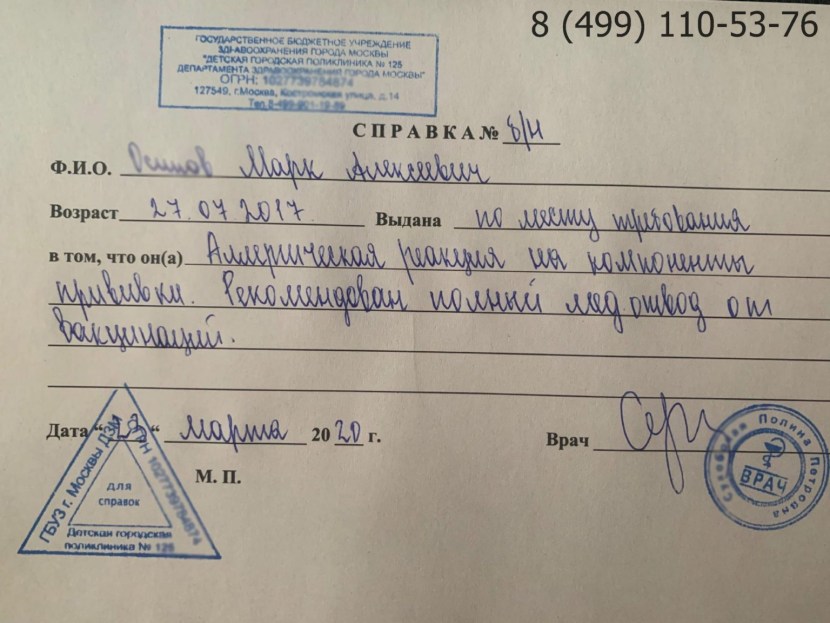 8 (499) 110-53-76
ГОСУДАРСТВЕННОЕ БЮДЖЕТНОЕ УЧРЕЖДЕНИЕ
ЗДРАВООХРАНЕНИЯ ГОРОДА МОСКВЫ
"ДЕТСКАЯ ГОРОДСКАЯ ПОЛИКЛИНИКА № 125
ДЕПАРТАМЕНТА ЗДРАВООХРАНЕНИЯ ГОРОДА МОСКВЫ"
ОГРН: 1027739754874
127549, г.Москва, Костромская улица, д.14
Тел.
СПРАВКА № б/н
Ф.И.О. Осипов Марк Алексеевич
Возраст 27.07.2017. Выдана по месту требования
в том, что он(а) Аллергическая реакция на компоненты
прививки. Рекомендован полный мед.отвод от
вакцинаций.
Дата " " марта 2020 г. Врач
М. П.
ГБУЗ г. Москвы ДЗМ
ОГРН 1027739754874
для
справок
Детская городская
поликлиника № 125
Полина Петровна
ВРАЧ